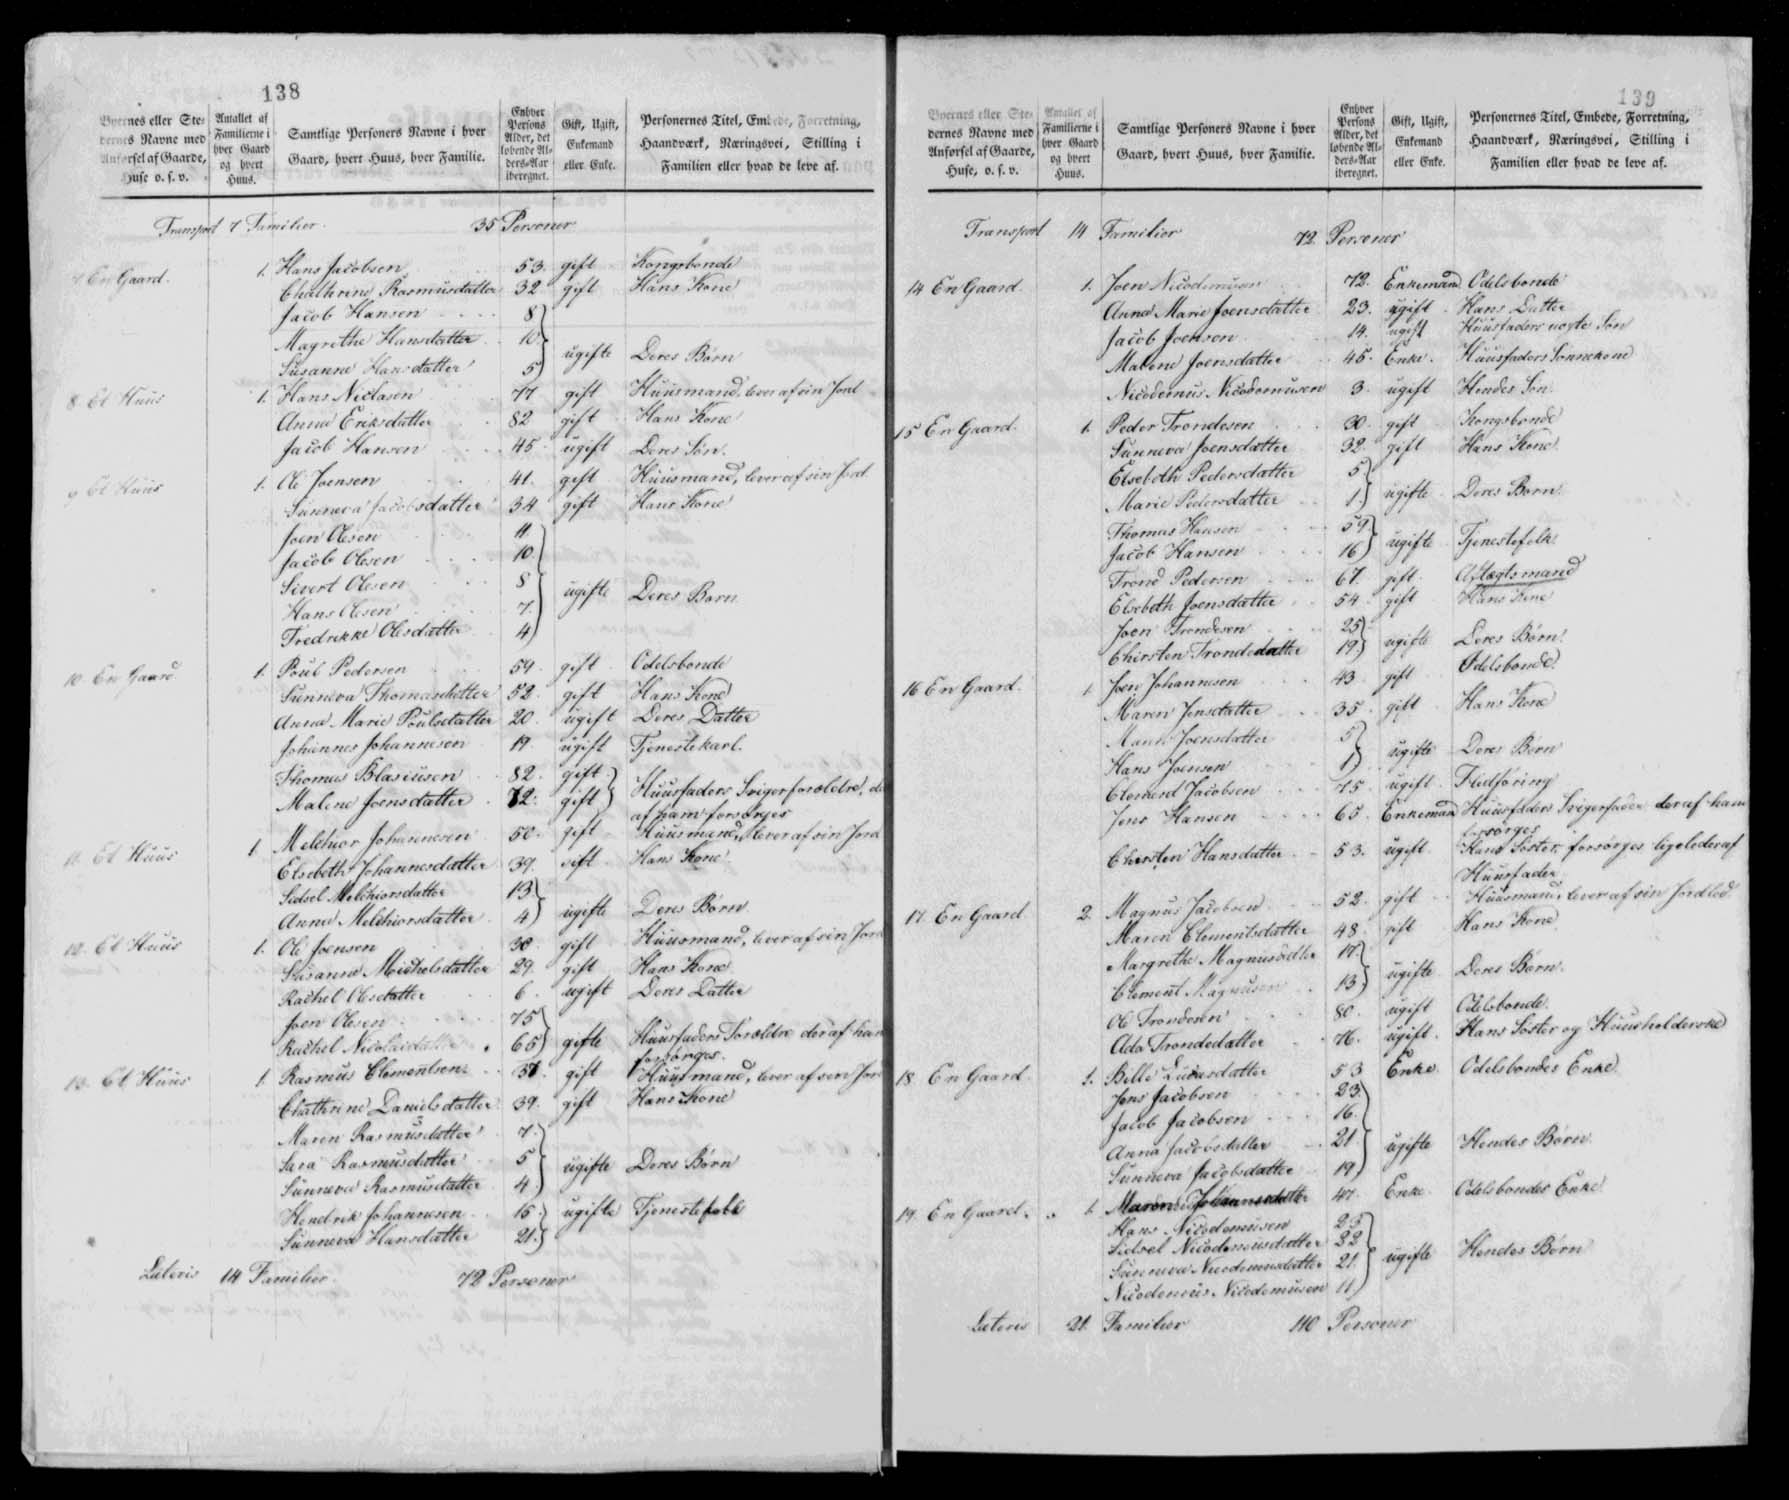 138
Byernes eller Ste- dernes Navne med Anførsel af Gaarde, Huse o. s. v.
Antallet af Familierne i hver Gaard og hvert Huus.
Samtlige Personers Navne i hver Gaard, hvert Huus, hver Familie.
Enhver Persons Alder, det løbende Al- ders-Aar iberegnet.
Gift, Ugift, Enkemand eller Enke.
Personernes Titel, Embede, Forretning, Haandværk, Næringsvei, Stilling i Familien eller hvad de leve af.
Transport 7 Familier. 35 Personer
7 En Gaard. 1. Hans Jacobsen 53. gift Kongsbonde
Chathrine Rasmusdatter 32 gift Hans Kone
Jacob Hansen 8
Magrethe Hansdatter 10.
Susanne Hansdatter 5 ugifte Deres Børn
8 Et Huus 1. Hans Niclasen 77 gift Huusmand, lever af sin Jord
Anna Eriksdatter 82 gift Hans Kone
Jacob Hansen 45 ugift Deres Søn.
9 Et Huus 1. Ole Joensen 41. gift Huusmand, lever af sin Jord
Sunneva Jacobsdatter 34 gift Hans Kone
Joen Olesen 11
Jacob Olesen 10.
Sivert Olesen 8 ugifte Deres Børn
Hans Olesen 7.
Fredrikke Olesdatter 4
10. En Gaard 1. Poul Pedersen 59 gift Odelsbonde
Sunneva Thomasdatter 52. gift Hans Kone
Anna Marie Poulsdatter 20. ugift Deres Datter
Johannes Johannesen 19. ugift Tjenestekarl.
Thomas Blasiusen 82. gift
Malene Joensdatter 72. gift Huusfaders Svigerforældre, de
af ham forsørges
11. Et Huus 1. Melchior Johannesen 50. gift Huusmand, lever af sin Jord
Elsebeth Johannesdatter 39. gift Hans Kone
Sidsel Melchiorsdatter 13
Anna Melchiorsdatter 4 ugifte Deres Børn
12. Et Huus 1. Ole Joensen 30 gift Huusmand, lever af sin Jord
Susanna Michelsdatter 29. gift Hans Kone
Rachel Olesdatter 6. ugift Deres Datter
Joen Olesen 75
Rachel Nicolaidatter 65 gifte Huusfaders Forældre der af ham
forsørges.
13. Et Huus 1. Rasmus Clementsen gift Huusmand, lever af sin Jord
Chathrine Danielsdatter 39. gift Hans Kone
Maren Rasmusdatter 7.
Sara Rasmusdatter 5 ugifte Deres Børn
Sunneva Rasmusdatter 4.
Hendrik Johannesen ugifte Tjenestefolk
Sunneva Hansdatter 21.
Lateris 14 Familier. 72 Personer
139
Byernes eller Ste- dernes Navne med Anførsel af Gaarde, Huse, o. s. v.
Antallet af Familierne i hver Gaard og hvert Huus.
Samtlige Personers Navne i hver Gaard, hvert Huus, hver Familie.
Enhver Persons Alder, det løbende Al- ders-Aar iberegnet.
Gift, Ugift, Enkemand eller Enke.
Personernes Titel, Embede, Forretning, Haandværk, Næringsvei, Stilling i Familien eller hvad de leve af.
Transport 14 Familier 72 Personer
14 En Gaard. 1. Joen Nicodemusen 72. Enkemand Odelsbonde
Anna Marie Joensdatter 23. ugift Hans Datter
Jacob Joensen 14. ugift Huusfaders uægte Søn
Malene Joensdatter 45. Enke. Huusfaders Sønnekone
Nicodemus Nicodemusen 3. ugift Hendes Søn.
15 En Gaard. 1. Peder Trondesen 30. gift Kongsbonde
Sunneva Joensdatter 32. gift Hans Kone
Elsebeth Pedersdatter 5
Marie Pedersdatter 1. ugifte Deres Børn
Thomas Hansen 59
Jacob Hansen 16 ugifte Tjenestefolk
Trond Pedersen 67. gift. Aftægtsmand
Elsebeth Joensdatter 54 gift Hans Kone
Joen Trondesen 25
Chirsten Trondedatter 19 ugifte Deres Børn
16 En Gaard. 1 Joen Johannesen 43 gift Odelsbonde
Maren Jensdatter 35. gift Hans Kone
Maria Joensdatter 5
Hans Joensen 1 ugifte Deres Børn
Clement Jacobsen 75 ugift Fledføring
Jens Hansen 65. Enkemand Huusfaders Svigerfader der af ham
forsørges
Chersten Hansdatter 53. ugift Hans Søster, forsørges ligeledes af
Huusfader
17. En Gaard 2. Magnus Jacobsen 52. gift Huusmand, lever af sin Jordlod
Maren Clementsdatter 48. gift Hans Kone
Margrethe Magnusdatter 17.
Clement Magnusen 13 ugifte Deres Børn.
Ole Trondesen 80. ugift Odelsbonde.
Ada Trondedatter 76. ugift. Hans Søster og Huusholderske
18. En Gaard. 1. Belle Lucasdatter 53 Enke Odelsbondes Enke
Jens Jacobsen 23.
Jacob Jacobsen 16.
Anna Jacobsdatter 21 ugifte Hendes Børn
Sunneva Jacobsdatter 19
19. En Gaard. 1. Maren Johannesdatter 47. Enke. Odelsbondes Enke
Hans Nicodemusen 23
Sidsel Nicodemusdatter 22
Sunneva Nicodemusdatter 21. ugifte Hendes Børn
Nicodemus Nicodemusen 11
Lateris 21. Familier 110 Personer